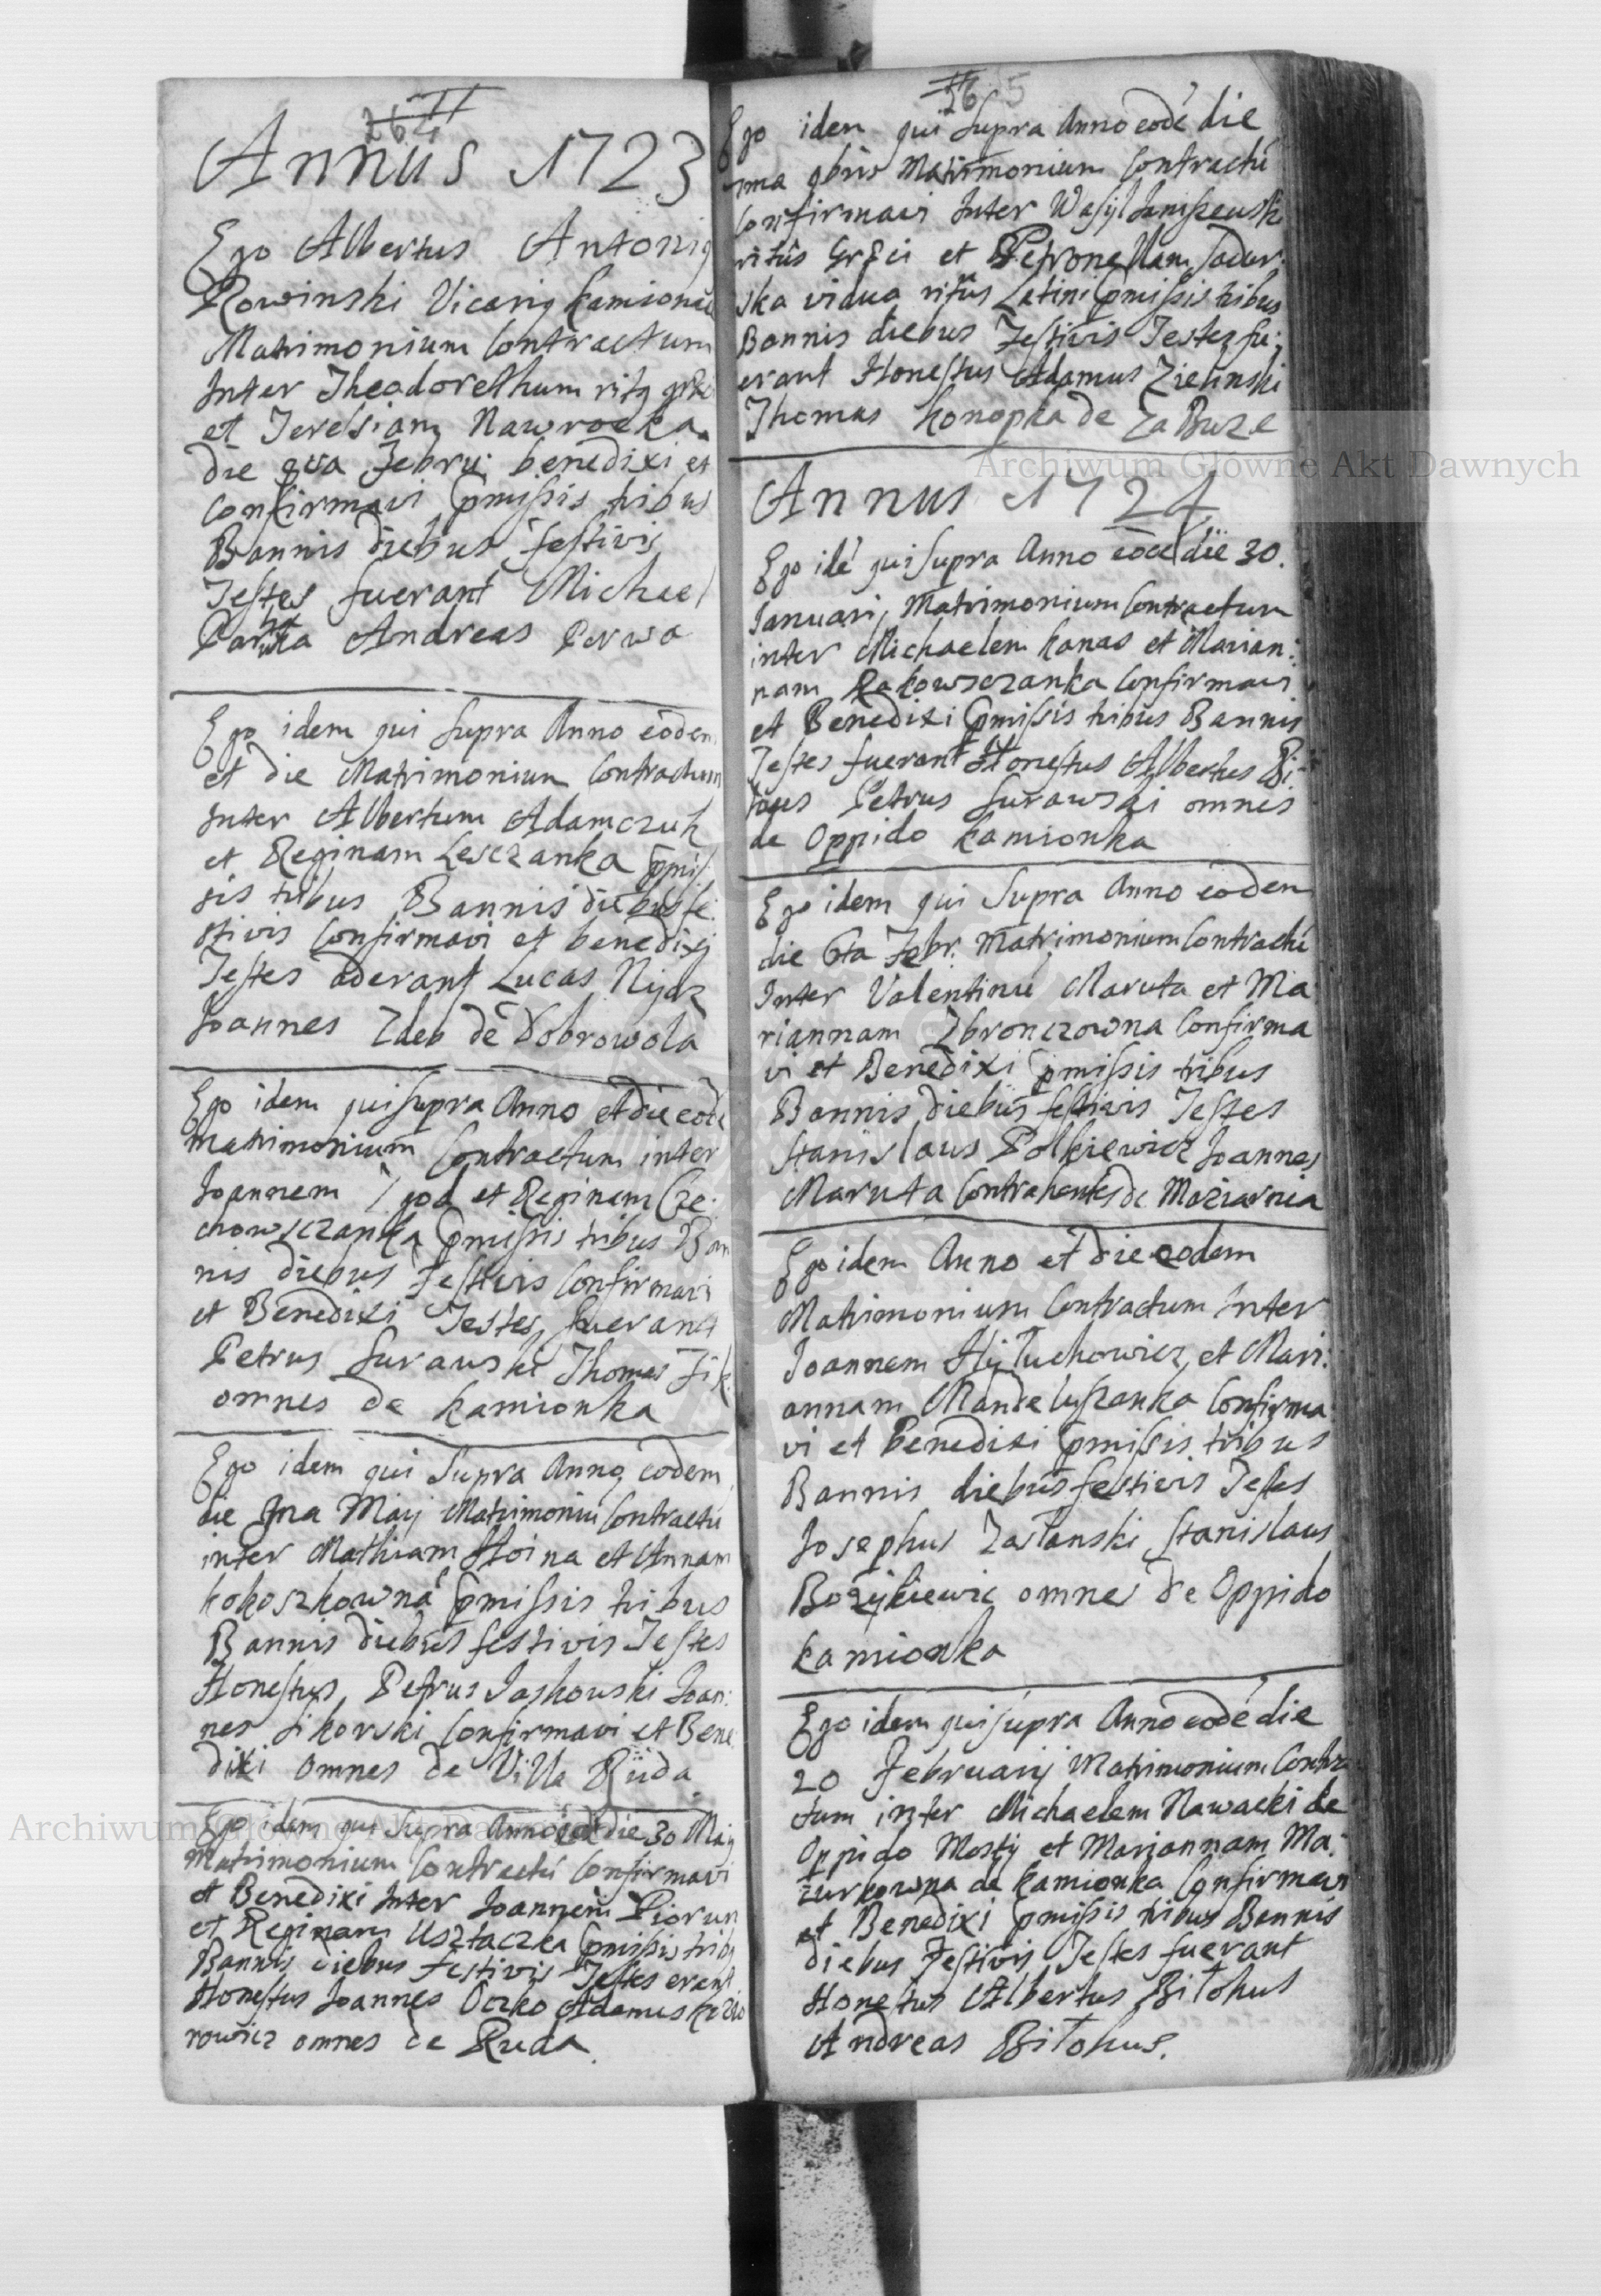 264
II
Annus 1723
Ego Albertus Antonig
Rowinski Vicarig Kamionac
Matrimonium Contractum
Inter Theodorethum ritg
et Teresiam Nawrocka
die Febru: benedixi et
Confirmavi pmissis tribus
Bannis diebus festivis
Testes fuerant Michael
Andreas Perwa
Ego idem qui Supra Anno eodem
et die Matrimonium Contractum
Inter Albertum Adamczuk
et Reginam Lesczanka pmis
sis tribus Bannis diebus fe:
stivis Confirmavi et benedixi
Testes aderant Lucas Nijdz
Joannes Zdeb de Dobrowola
Ego idem qui supra Anno et die eode
matrimonium Contractum inter
Joannem et Reginam Cze:
chowsczanka pmissis tribus Ban
nis diebus Festivis Confirmavi
et Benedixi Testes fuerant
Petrus Surawski Thomas
omnes de Kamionka
Ego idem qui Supra Anno eodem
die Maij Matrimoniu Contractu
inter Mathiam Hoina et Annam
Kokoszkowna pmissis tribus
Bannis diebus festivis Testes
Honestus Petrus Jaskowski Joan:
nes Sikorski Confirmavi et Bene
dixi omnes de Villa Ruda
Ego idem qui Supra Anno die 30 Maij
Matrimonium Contractu Confirmavi
et Benedixi Inter Joannem Piorun
et Reginam Usztaczka pmissis tribg
Bannis diebus Festivis Testes erant
Honestus Joannes Oczko Adamus
rowicz omnes de Ruda.
II
265
Ego idem qui Supra Anno eode die
Matrimonium Contractu
Confirmavi Inter Wasijl Janiszewsk
ritus Greci et Petronellam Sadur:
ska vidua ritus Latini pmissis tribus
Bannis diebus Festivis Testes fu:
erant Honestus Adamus Zielinski
Thomas Konopka de ZaBuze
Annus 1724
Ego ide qui supra Anno eode die 30.
Januarij Matrimonium Contractum
inter Michaelem Kanas et Marian:
nam Rakowsczanka Confirmavi
et Benedixi pmissis tribus Bannis
Testes fuerant Honestus Albertus Bi:
tous Petrus Surawski omnes
de Oppido Kamionka
Ego idem qui Supra Anno eodem
die 6ta Febr. Matrimonium Contractu
Inter Valentinu Maruta et Ma
riannam Zbronczowna Confirma
vi et Benedixi pmissis tribus
Bannis diebus festivis Testes
Stanislaus Polkiewicz Joannes
Maruta Contrahentes de Maziarnia
Ego idem Anno et die eodem
Matrimonium Contractum Inter
Joannem Hijtuchowicz et Mari:
annam Mandeluszanka Confirma
vi et benedixi pmissis tribus
Bannis diebus festivis Testes
Josephus Zaslanski Stanislaus
Bozijkiewic omnes de Oppido
Kamionka
Ego idem qui supra Anno eode die
20 Februarij Matrimonium Contra
ctum inter Michaelem Nawacki de
Oppido Mostij et Mariannam Ma:
zurkowna de Kamionka Confirmavi
et Benedixi pmissis tribus Bannis
diebus Festivis Testes fuerant
Honestus Albertus Bitohus
Andreas Bitohus.
Archiwum Główne Akt Dawnych
Archiwum Główne Akt Dawnych